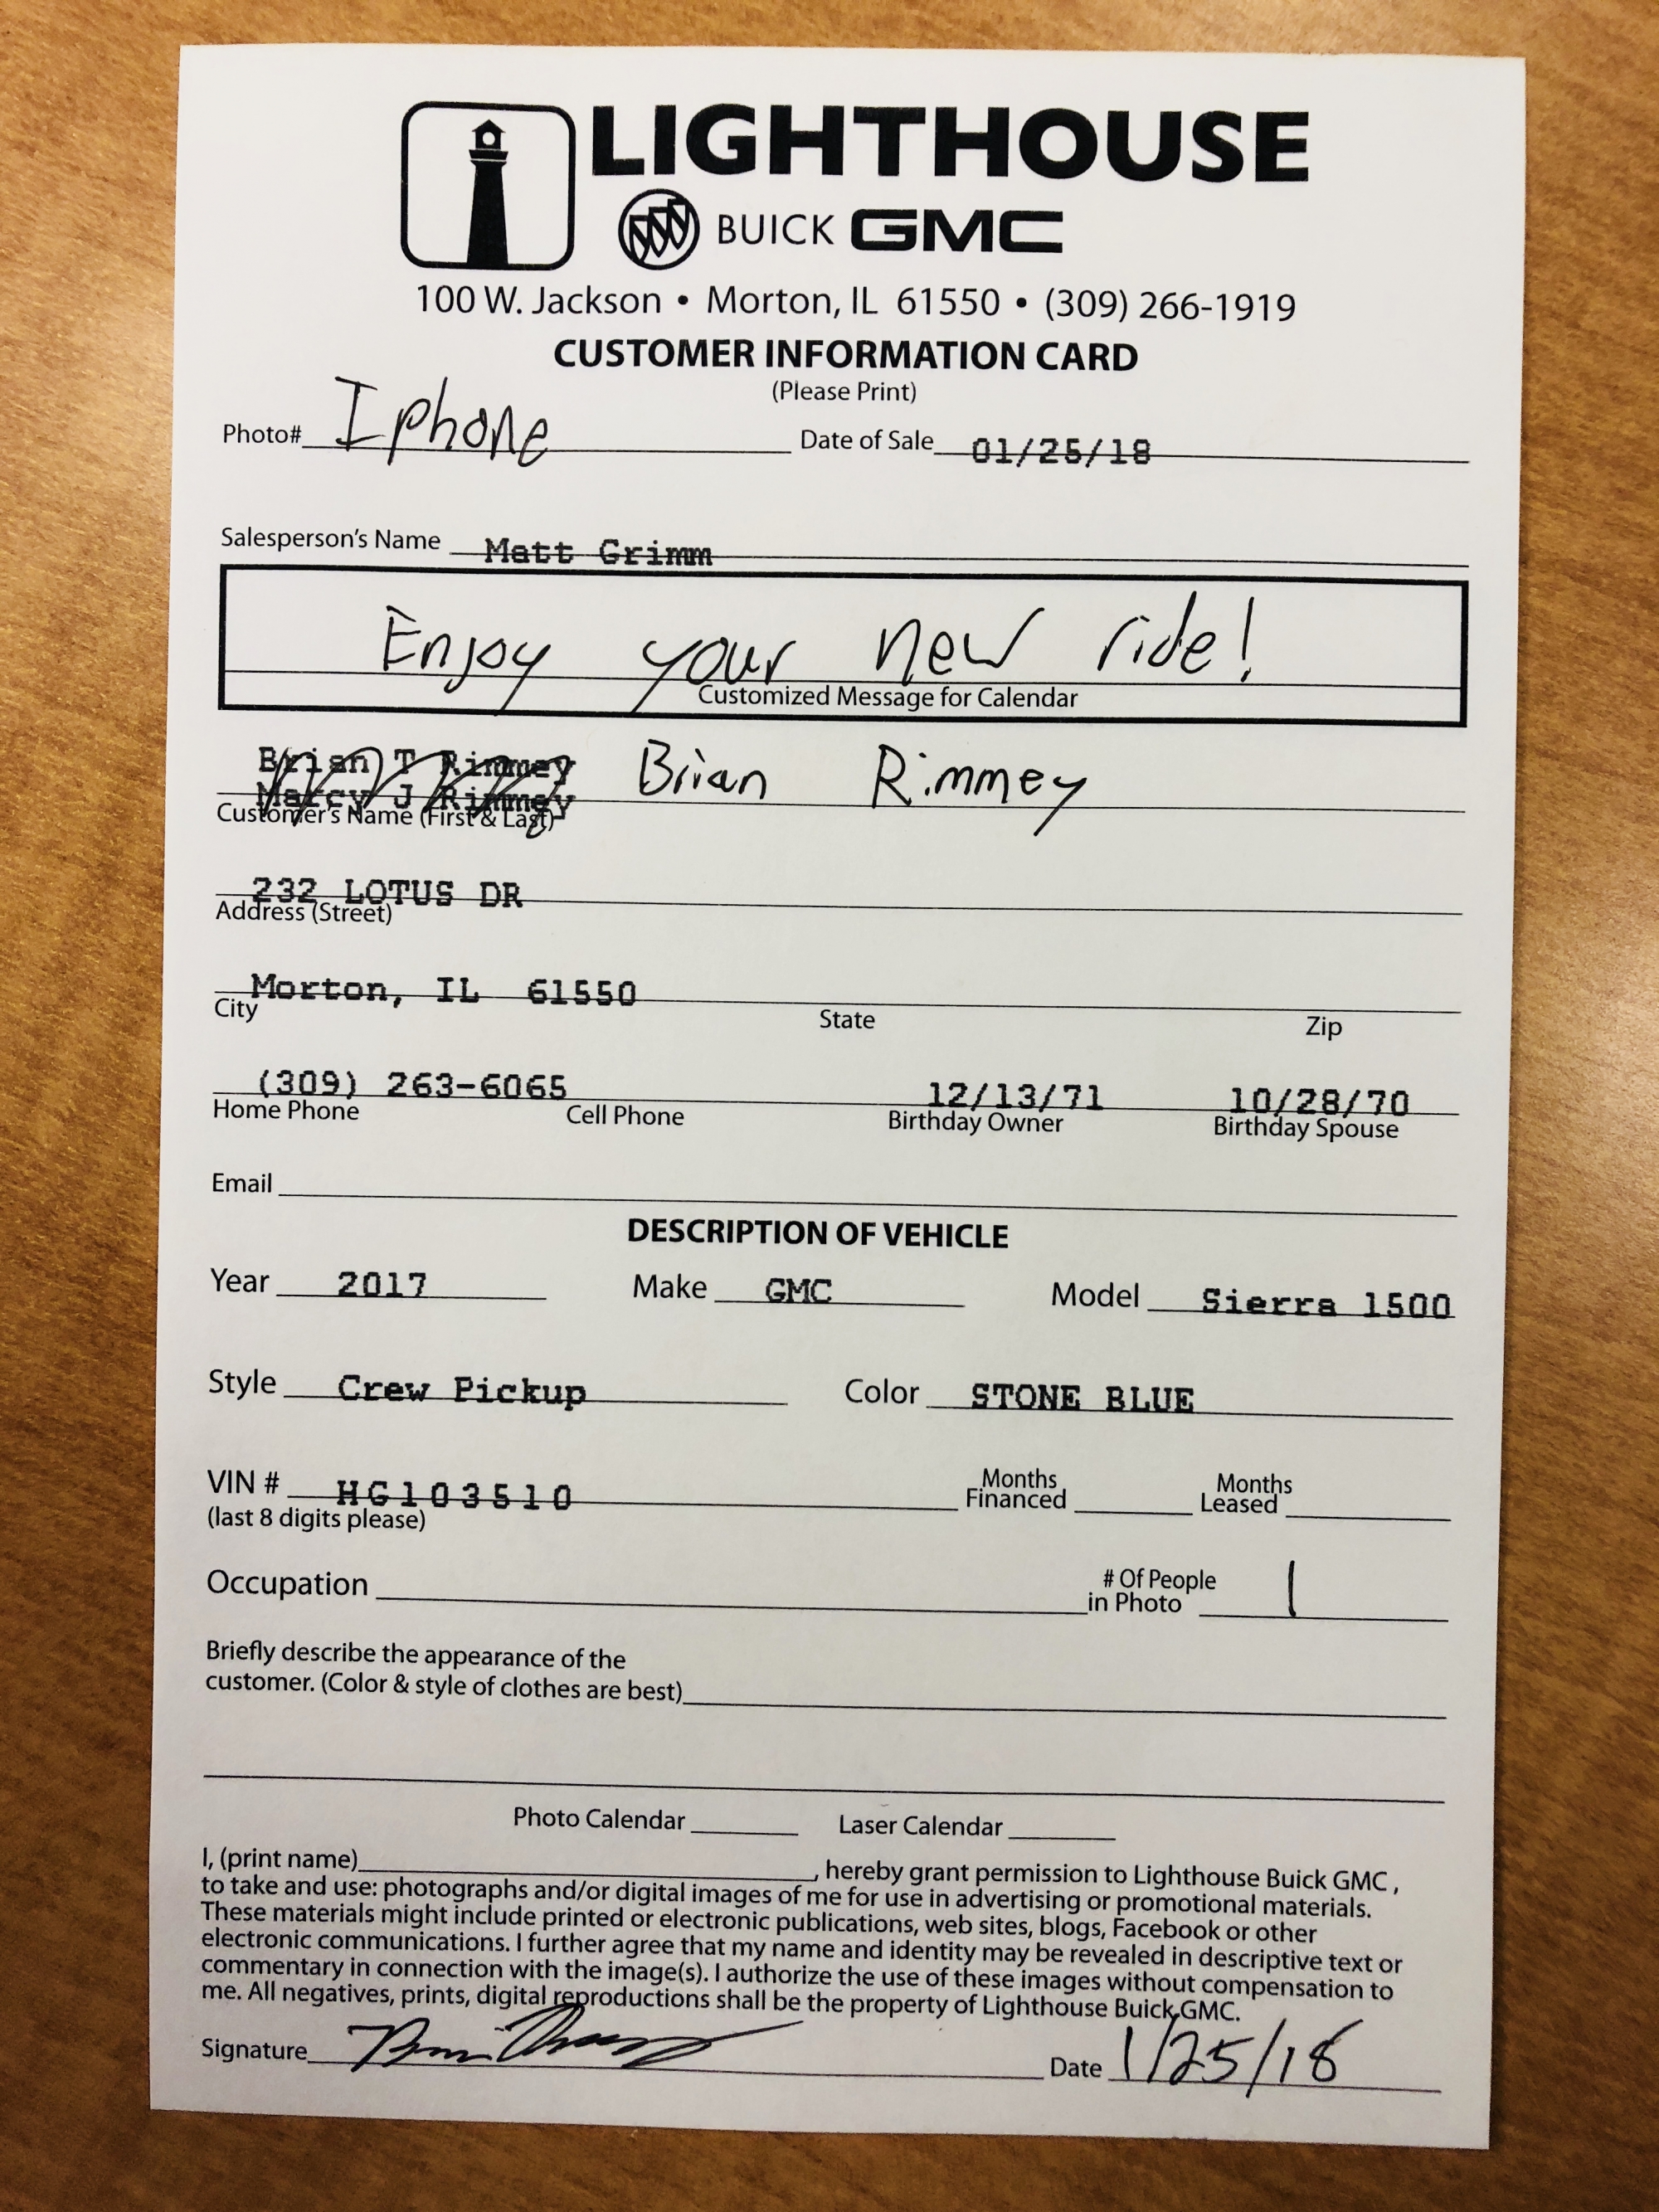 LIGHTHOUSE
BUICK GMC
100 W. Jackson • Morton, IL 61550 • (309) 266-1919
CUSTOMER INFORMATION CARD
(Please Print)
Photo# Iphone Date of Sale 01/25/18
Salesperson's Name Matt Grimm
Enjoy your new ride!
Customized Message for Calendar
Brian T Rimmey Brian Rimmey
Marcy J Rimmey
Customer's Name (First & Last)
232 LOTUS DR
Address (Street)
Morton, IL 61550
City State Zip
(309) 263-6065 12/13/71 10/28/70
Home Phone Cell Phone Birthday Owner Birthday Spouse
Email
DESCRIPTION OF VEHICLE
Year 2017 Make GMC Model Sierra 1500
Style Crew Pickup Color STONE BLUE
VIN # HG103510 Months Financed Months Leased
(last 8 digits please)
Occupation # Of People in Photo 1
Briefly describe the appearance of the
customer. (Color & style of clothes are best)
Photo Calendar Laser Calendar
I, (print name) , hereby grant permission to Lighthouse Buick GMC ,
to take and use: photographs and/or digital images of me for use in advertising or promotional materials.
These materials might include printed or electronic publications, web sites, blogs, Facebook or other
electronic communications. I further agree that my name and identity may be revealed in descriptive text or
commentary in connection with the image(s). I authorize the use of these images without compensation to
me. All negatives, prints, digital reproductions shall be the property of Lighthouse Buick GMC.
Signature Date 1/25/18